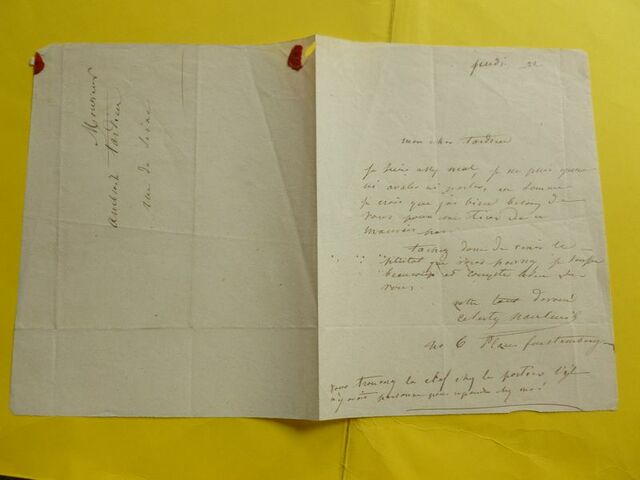 Monsieur
Amédée Tardieu
rue de Seine
jeudi 22
mon cher Tardieu
je suis assez mal, je ne puis
ni avaler ni parler, en somme
je crois que j'ai bien besoin de
vous pour me tirer de ce
mauvais pas.
tachez donc de venir le
plutot que vous pourrez je souffre
beaucoup et compte bien sur
vous.
votre tout dévoué
Célestin Nanteuil
no 6 Place furstemberg
vous trouverez la clef chez le portier s'il
n'y avait personne pour repondre chez moi!